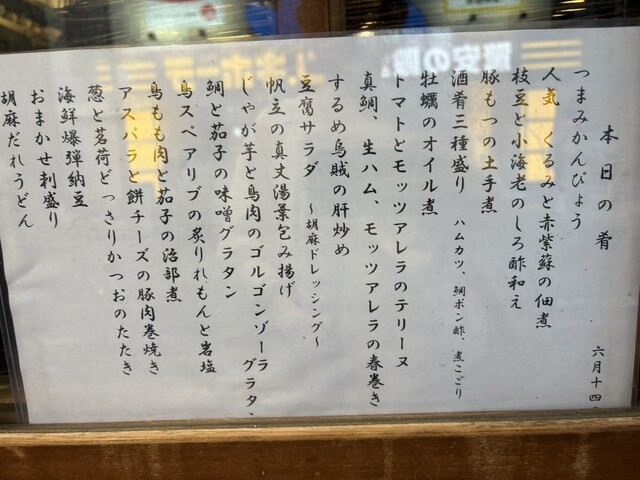 本日の肴
六月十四
つまみかんぴょう
人気 くるみと赤紫蘇の佃煮
枝豆と小海老のしろ酢和え
豚もつの土手煮
酒肴三種盛り ハムカツ、鯛ポン酢、煮こごり
牡蠣のオイル煮
トマトとモッツアレラのテリーヌ
真鯛、生ハム、モッツアレラの春巻き
するめ烏賊の肝炒め
豆腐サラダ 〜胡麻ドレッシング〜
帆立の真丈湯葉包み揚げ
じゃが芋と鳥肉のゴルゴンゾーラ グラタ
鯛と茄子の味噌グラタン
鳥スペアリブの炙りれもんと岩塩
鳥もも肉と茄子の治部煮
アスパラと餅チーズの豚肉巻焼き
葱と茗荷どっさりかつおのたたき
海鮮爆弾納豆
おまかせ刺盛り
胡麻だれうどん